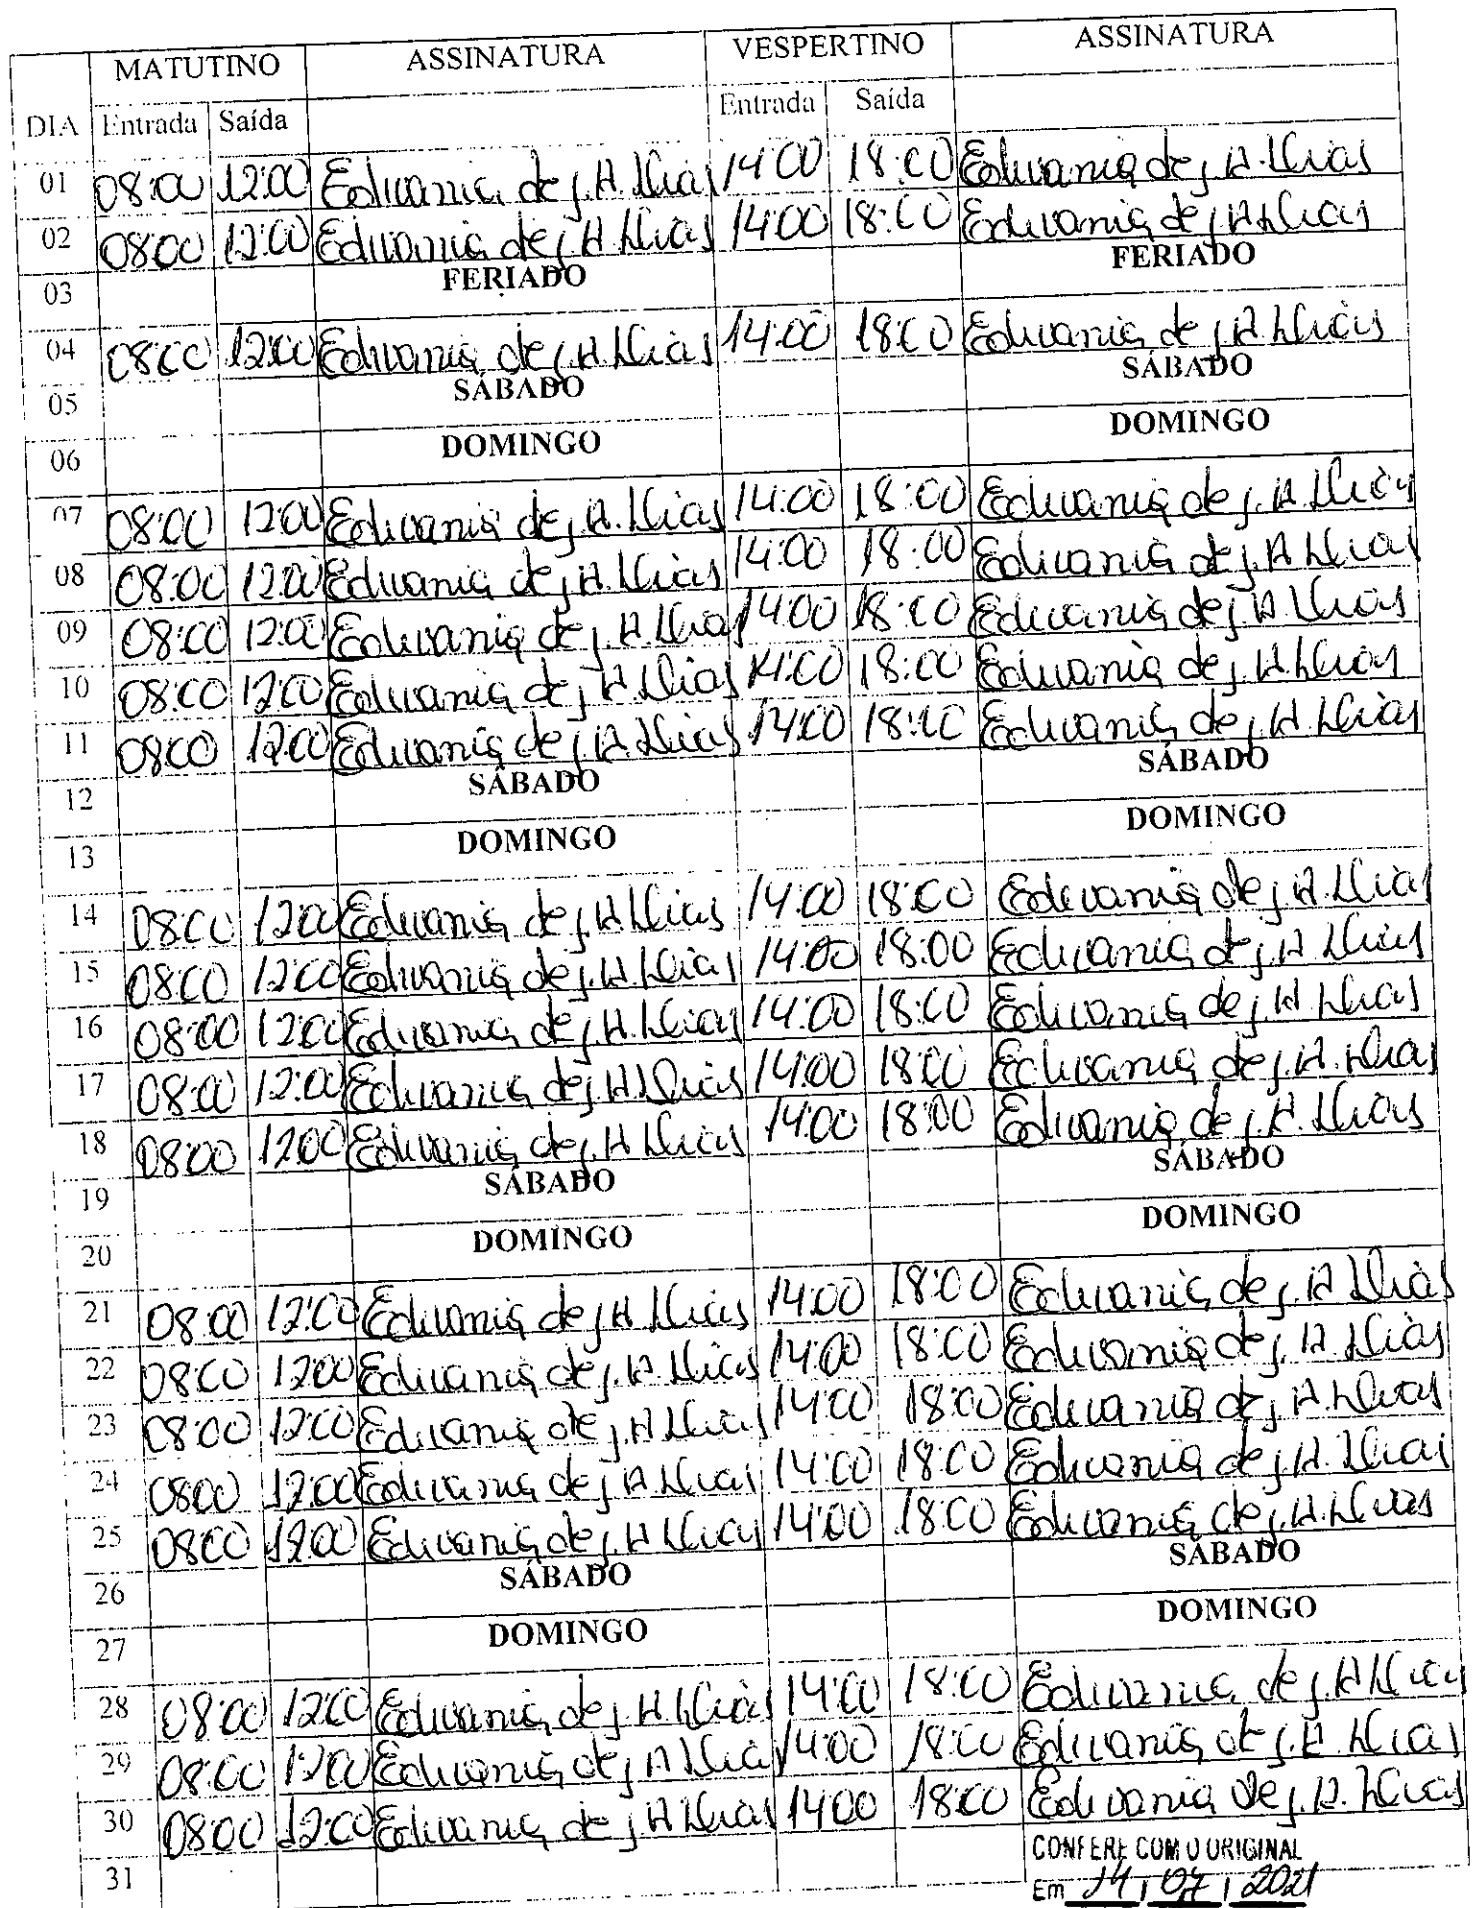 MATUTINO ASSINATURA VESPERTINO ASSINATURA
DIA Entrada Saída Entrada Saída
01 08:00 12:00 Edivania de j. A. 14:00 18:00 Edivania de j. A.
02 08:00 12:00 Edivania de j. A. 14:00 18:00 Edivania de j. A.
03 FERIADO FERIADO
04 08:00 12:00 Edivania de j. A. 14:00 18:00 Edivania de j. A.
05 SÁBADO SÁBADO
06 DOMINGO DOMINGO
07 08:00 12:00 Edivania de j. A. 14:00 18:00 Edivania de j. A.
08 08:00 12:00 Edivania de j. A. 14:00 18:00 Edivania de j. A.
09 08:00 12:00 Edivania de j. A. 14:00 18:00 Edivania de j. A.
10 08:00 12:00 Edivania de j. A. 14:00 18:00 Edivania de j. A.
11 08:00 12:00 Edivania de j. A. 14:00 18:00 Edivania de j. A.
12 SÁBADO SÁBADO
13 DOMINGO DOMINGO
14 08:00 12:00 Edivania de j. A. 14:00 18:00 Edivania de j. A.
15 08:00 12:00 Edivania de j. A. 14:00 18:00 Edivania de j. A.
16 08:00 12:00 Edivania de j. A. 14:00 18:00 Edivania de j. A.
17 08:00 12:00 Edivania de j. A. 14:00 18:00 Edivania de j. A.
18 08:00 12:00 Edivania de j. A. 14:00 18:00 Edivania de j. A.
19 SÁBADO SÁBADO
20 DOMINGO DOMINGO
21 08:00 12:00 Edivania de j. A. 14:00 18:00 Edivania de j. A.
22 08:00 12:00 Edivania de j. A. 14:00 18:00 Edivania de j. A.
23 08:00 12:00 Edivania de j. A. 14:00 18:00 Edivania de j. A.
24 08:00 12:00 Edivania de j. A. 14:00 18:00 Edivania de j. A.
25 08:00 12:00 Edivania de j. A. 14:00 18:00 Edivania de j. A.
26 SÁBADO SÁBADO
27 DOMINGO DOMINGO
28 08:00 12:00 Edivania de j. A. 14:00 18:00 Edivania de j. A.
29 08:00 12:00 Edivania de j. A. 14:00 18:00 Edivania de j. A.
30 08:00 12:00 Edivania de j. A. 14:00 18:00 Edivania de j. A.
31 CONFERE COM O ORIGINAL
Em 14 / 07 / 2021